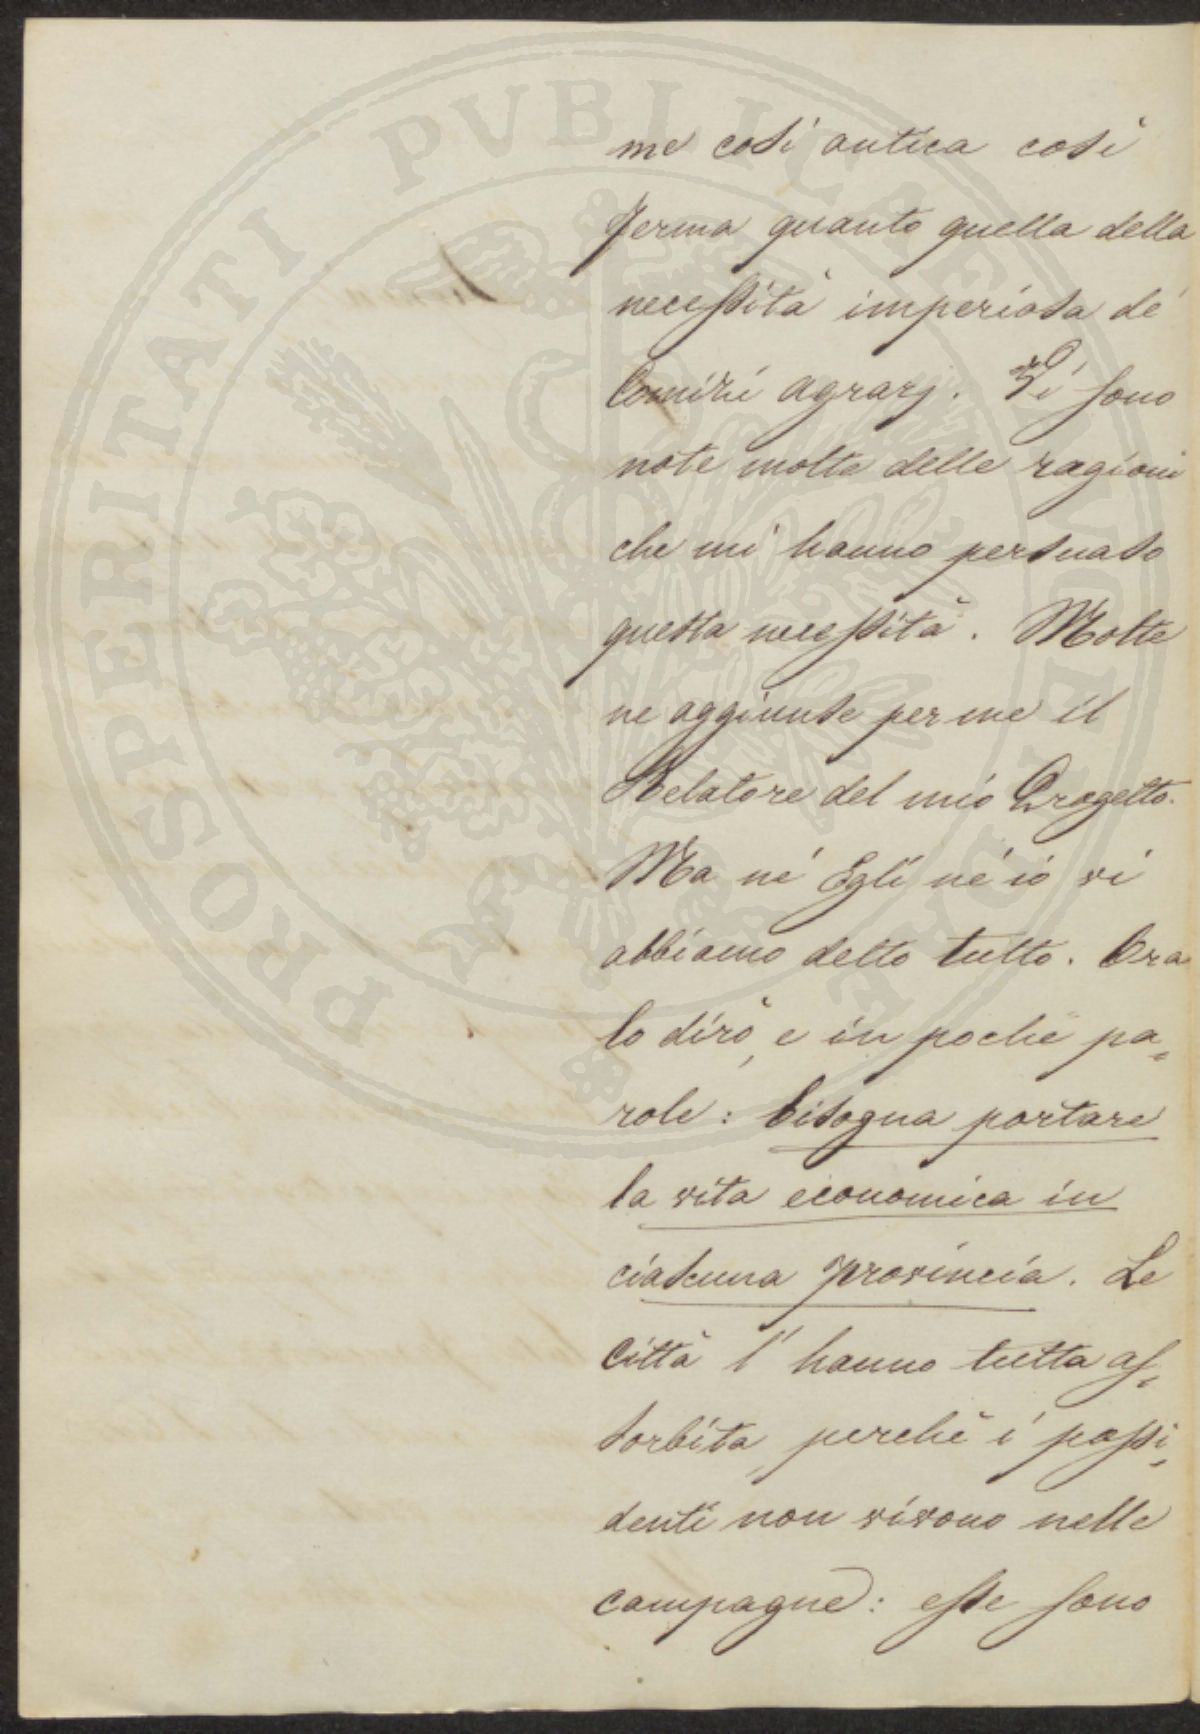 PROSPERITATI PVBLICAE AVGENDAE
me così antica così
ferma quanto quella della
necessità imperiosa de'
Comizi agrarj. Vi sono
note molte delle ragioni
che mi hanno persuaso
questa necessità. Molte
ne aggiunse per me il
Relatore del mio Progetto.
Ma né Egli né io vi
abbiamo detto tutto. Ora
lo dirò, e in poche pa=
role: bisogna portare
la vita economica in
ciascuna provincia. Le
Città l'hanno tutta as=
sorbita, perchè i possi=
denti non vivono nelle
campagne: esse sono